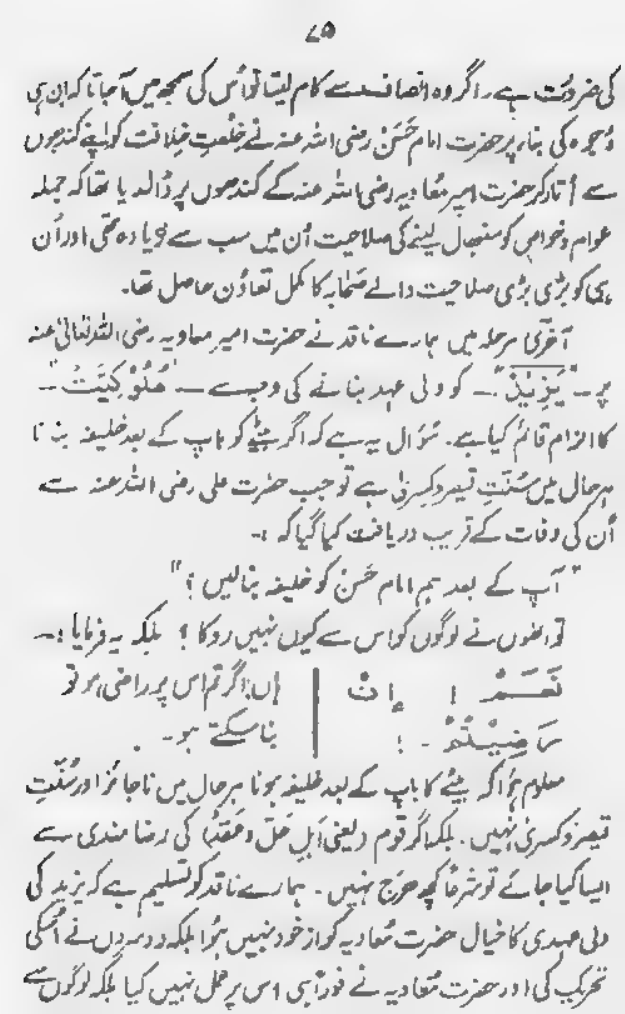 ۷۵
کی ضرورت ہے۔ اگر وہ انصاف سے کام لیتا تو اُس کی سمجھ میں آ جاتا کہ ان ہی
وُجوہ کی بناء پر حضرت امام حَسَنْ رضی اللہ عنہ نے خِلْعتِ خِلافت کو اپنے کندھوں
سے اُتار کر حضرت امیر مُعاویہ رضی اللہ عنہ کے کندھوں پر ڈالدیا تھا کہ جملہ
عوام و خواص کو سنبھال لینے کی صلاحیت اُن میں سب سے زیادہ تھی اور اُن
ہی کو بڑی بڑی صلاحیت والے صَحَابہ کا مکمل تعاوُن حاصل تھا۔
آخری مرحلہ میں ہمارے ناقد نے حضرت امیر معاویہ رضی اللہ تعالیٰ عنہ
پر ۔ "یَزِیْدْ" ۔ کو ولی عہد بنانے کی وجہ سے ۔ "مُلُوْکِیَّتْ" ۔
کا الزام قائم کیا ہے۔ سُوَال یہ ہے کہ اگر بیٹے کو باپ کے بعد خلیفہ بنانا
ہر حال میں سُنَّتِ قیصر و کسریٰ ہے تو جب حضرت علی رضی اللہ عنہ سے
اُن کی وفات کے قریب دریافت کیا گیا کہ :۔
"آپ کے بعد ہم امام حَسَنْ کو خلیفہ بنالیں ؟"
تو انھوں نے لوگوں کو اس سے کیوں نہیں روکا ؟ بلکہ یہ فرمایا :۔
نَعَمْ ! إِنْ | ہاں! اگر تم اس پر راضی ہو تو
رَضِیْتُمْ ۔ ! | بنا سکتے ہو ۔
معلوم ہُوا کہ بیٹے کا باپ کے بعد خلیفہ ہونا ہر حال میں ناجائز اور سُنَّتِ
قیصر و کسریٰ نہیں۔ بلکہ اگر قوم (یعنی اَہلِ حَلّ و عَقْد) کی رضامندی سے
ایسا کیا جائے تو شرعًا کچھ حرَج نہیں۔ ہمارے ناقد کو تسلیم ہے کہ یزید کی
ولی عہدی کا خیال حضرت مُعاویہ کو از خود نہیں ہُوا بلکہ دوسروں نے اُسکی
تحریک کی اور حضرت مُعاویہ نے فوراً ہی اس پر عمل نہیں کیا بلکہ لوگوں سے